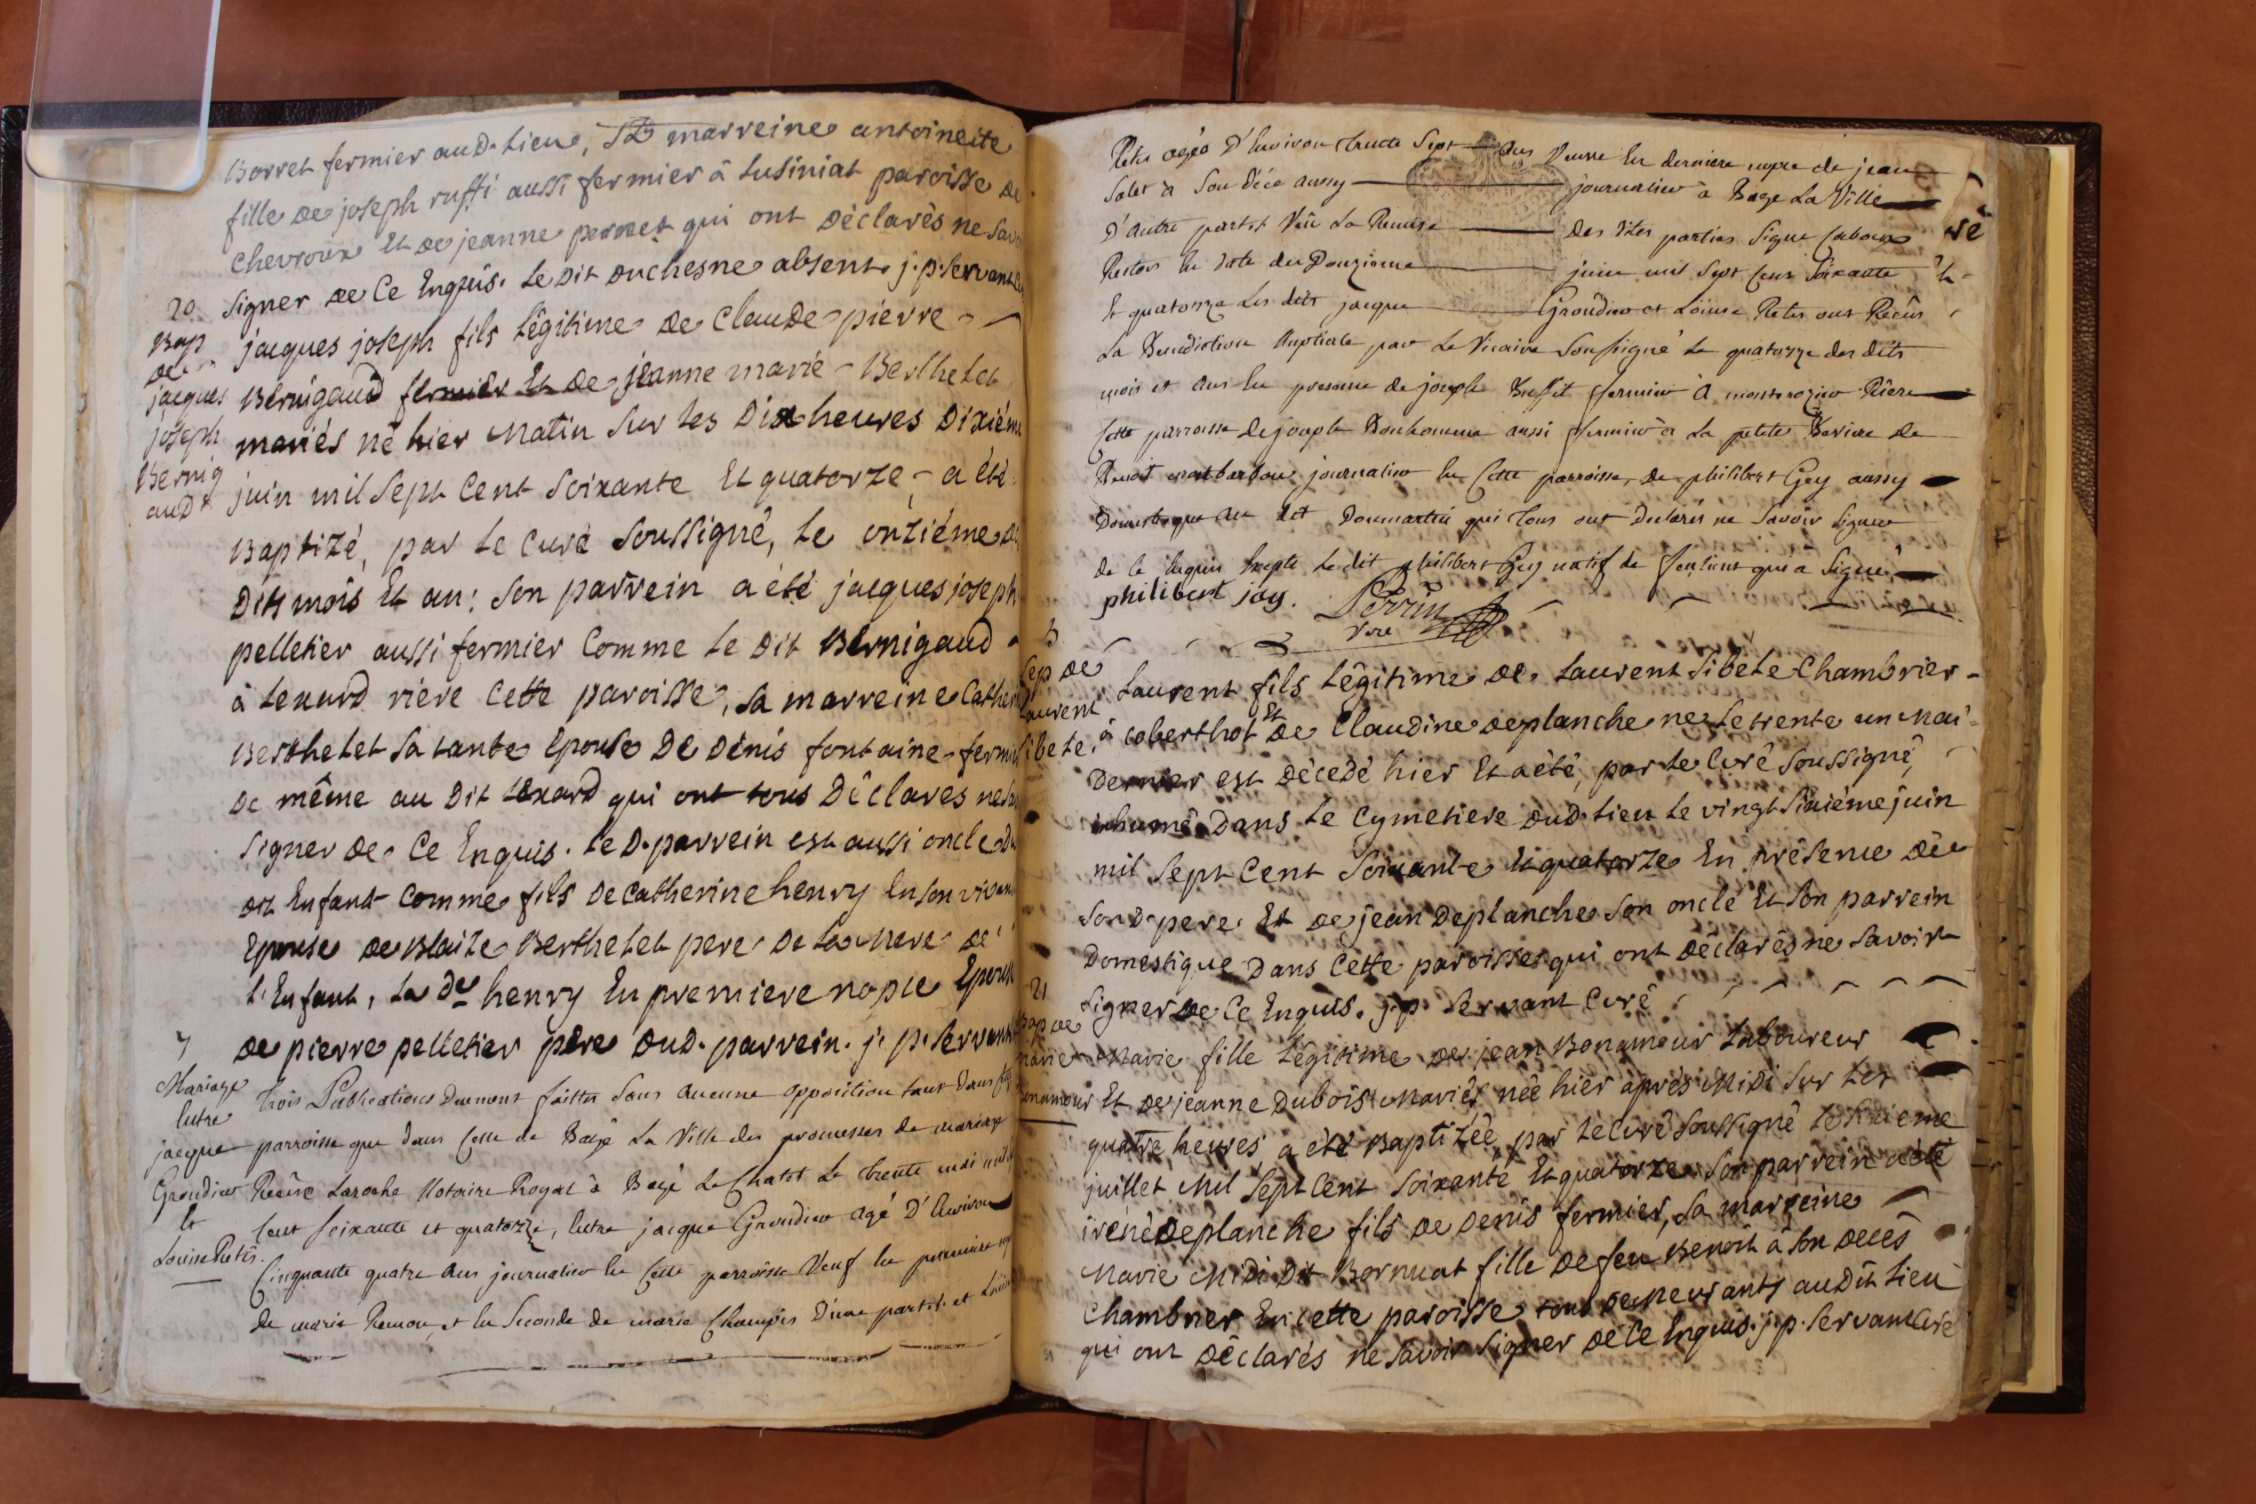 Borret fermier aud. lieu, sa marreine antoinette
fille de joseph ruffi aussi fermier à Lusiniat paroisse de
chevroux Et de jeanne pernet qui ont déclarés ne Sav
Signer de Ce Enquis. le dit duchesne absent. j. p. Servant
20
Bap
de
jacques
joseph
Bernig
aud
jacques joseph fils Légitime de Claude pierre
Bernigaud fermier Et de jeanne marie Berthelet
mariés né hier Matin Sur les Dix heures Dixiéme
juin mil Sept Cent Soixante Et quatorze, a été
Baptizé, par le Curé Soussigné, le onziéme
Dits mois Et an: Son parrein a été jacques joseph
pelletier aussi fermier Comme le Dit Bernigaud
à tenard riere Cette paroisse, Sa marreine Cather
Berthelet Sa tante Epouse De Dénis fontaine fermi
De même au Dit tenard qui ont tous Déclarés ne
Signer de Ce Enquis. le D. parrein est aussi oncle
dit Enfant Comme fils De Catherine henry En son vivan
Epouse de Blaize Berthelet pere De la Mere de
l'Enfant, la de henry En premiere nopce Epouse
de pierre pelletier pere dud. parrein. j. p. Servant
7
Mariage
Entre
jacque
Grondier
Et
Louise Retis.
Trois Publications Duement faittes Sans aucune opposition tant dans
parroisse que dans Celle de Bagé La Ville des promesses de mariage
Reçûe Laroche Notaire Royal à Bagé Le Chatel Le trente mai mil
Cent Soixante et quatorze, Entre jacque Grondier agé D'Environ
Cinquante quatre ans journalier En Cette parroisse Veuf En premiere
de marie Remon, et En Seconde de marie Champis D'une part et Louise
Retis agée D'Environ trente Sept ans Veuve En derniere nopce de jean
Salet à Son Décé aussy journalier à Bage La Ville
D'autre part Vue La Remise des Dites parties Signé
En date du Douzieme juin mil Sept Cent Soixante
Et quatorze Les dits jacque Grondier et Loüise Retis ont Reçûs
La Benediction Nuptiale par Le Vicaire Soussigné Le quatorze des dits
mois et an En presence de joseph Buffet fermier à Riere
Cette parroisse de joseph Bonhomme aussi fermier à La petite de
Benoit journalier En Cette parroisse, de philibert Gey aussy
Domestique au dit Donmartin qui tous ont Declarés ne Savoir Signer
de Ce Enquis Exepte Le dit philibert Gey natif de qui à Signé
philibert jay. Perrin
Vre
Sep de
laurent
Sibete.
Laurent fils Légitime de Laurent Sibete Chambrier
à coberthot Et de Claudine deplanche né le trente un Mai
Dernier est décedé hier Et a été, par le Curé Soussigné,
inhumé Dans le Cymetiere dud. lieu le vingt Sixiéme juin
mil Sept Cent Soixante Et quatorze En présence de
Son d. pere. Et de jean Deplanche Son oncle Et Son parrein
Domestique Dans Cette paroisse qui ont Déclarés ne Savoir
Signer de Ce Enquis. j. p. Servant Curé
21
bap de
marie
bonamour
Marie fille Légitime de jean Bonamour laboureur
Et de jeanne Dubois Mariés née hier après Midi Sur les
quatre heures, a été Baptizée, par le Curé Soussigné
juillet Mil Sept Cent Soixante Et quatorze Son parrein a été
iréné deplanche fils de Denis fermier, Sa marreine
Marie Midi Dit Bornuat fille De feu Benoit à Son Décés
Chambrier En cette paroisse tous demeurants audit lieu
qui ont Déclarés ne Savoir Signer de Ce Enquis. j. p. Servant Curé